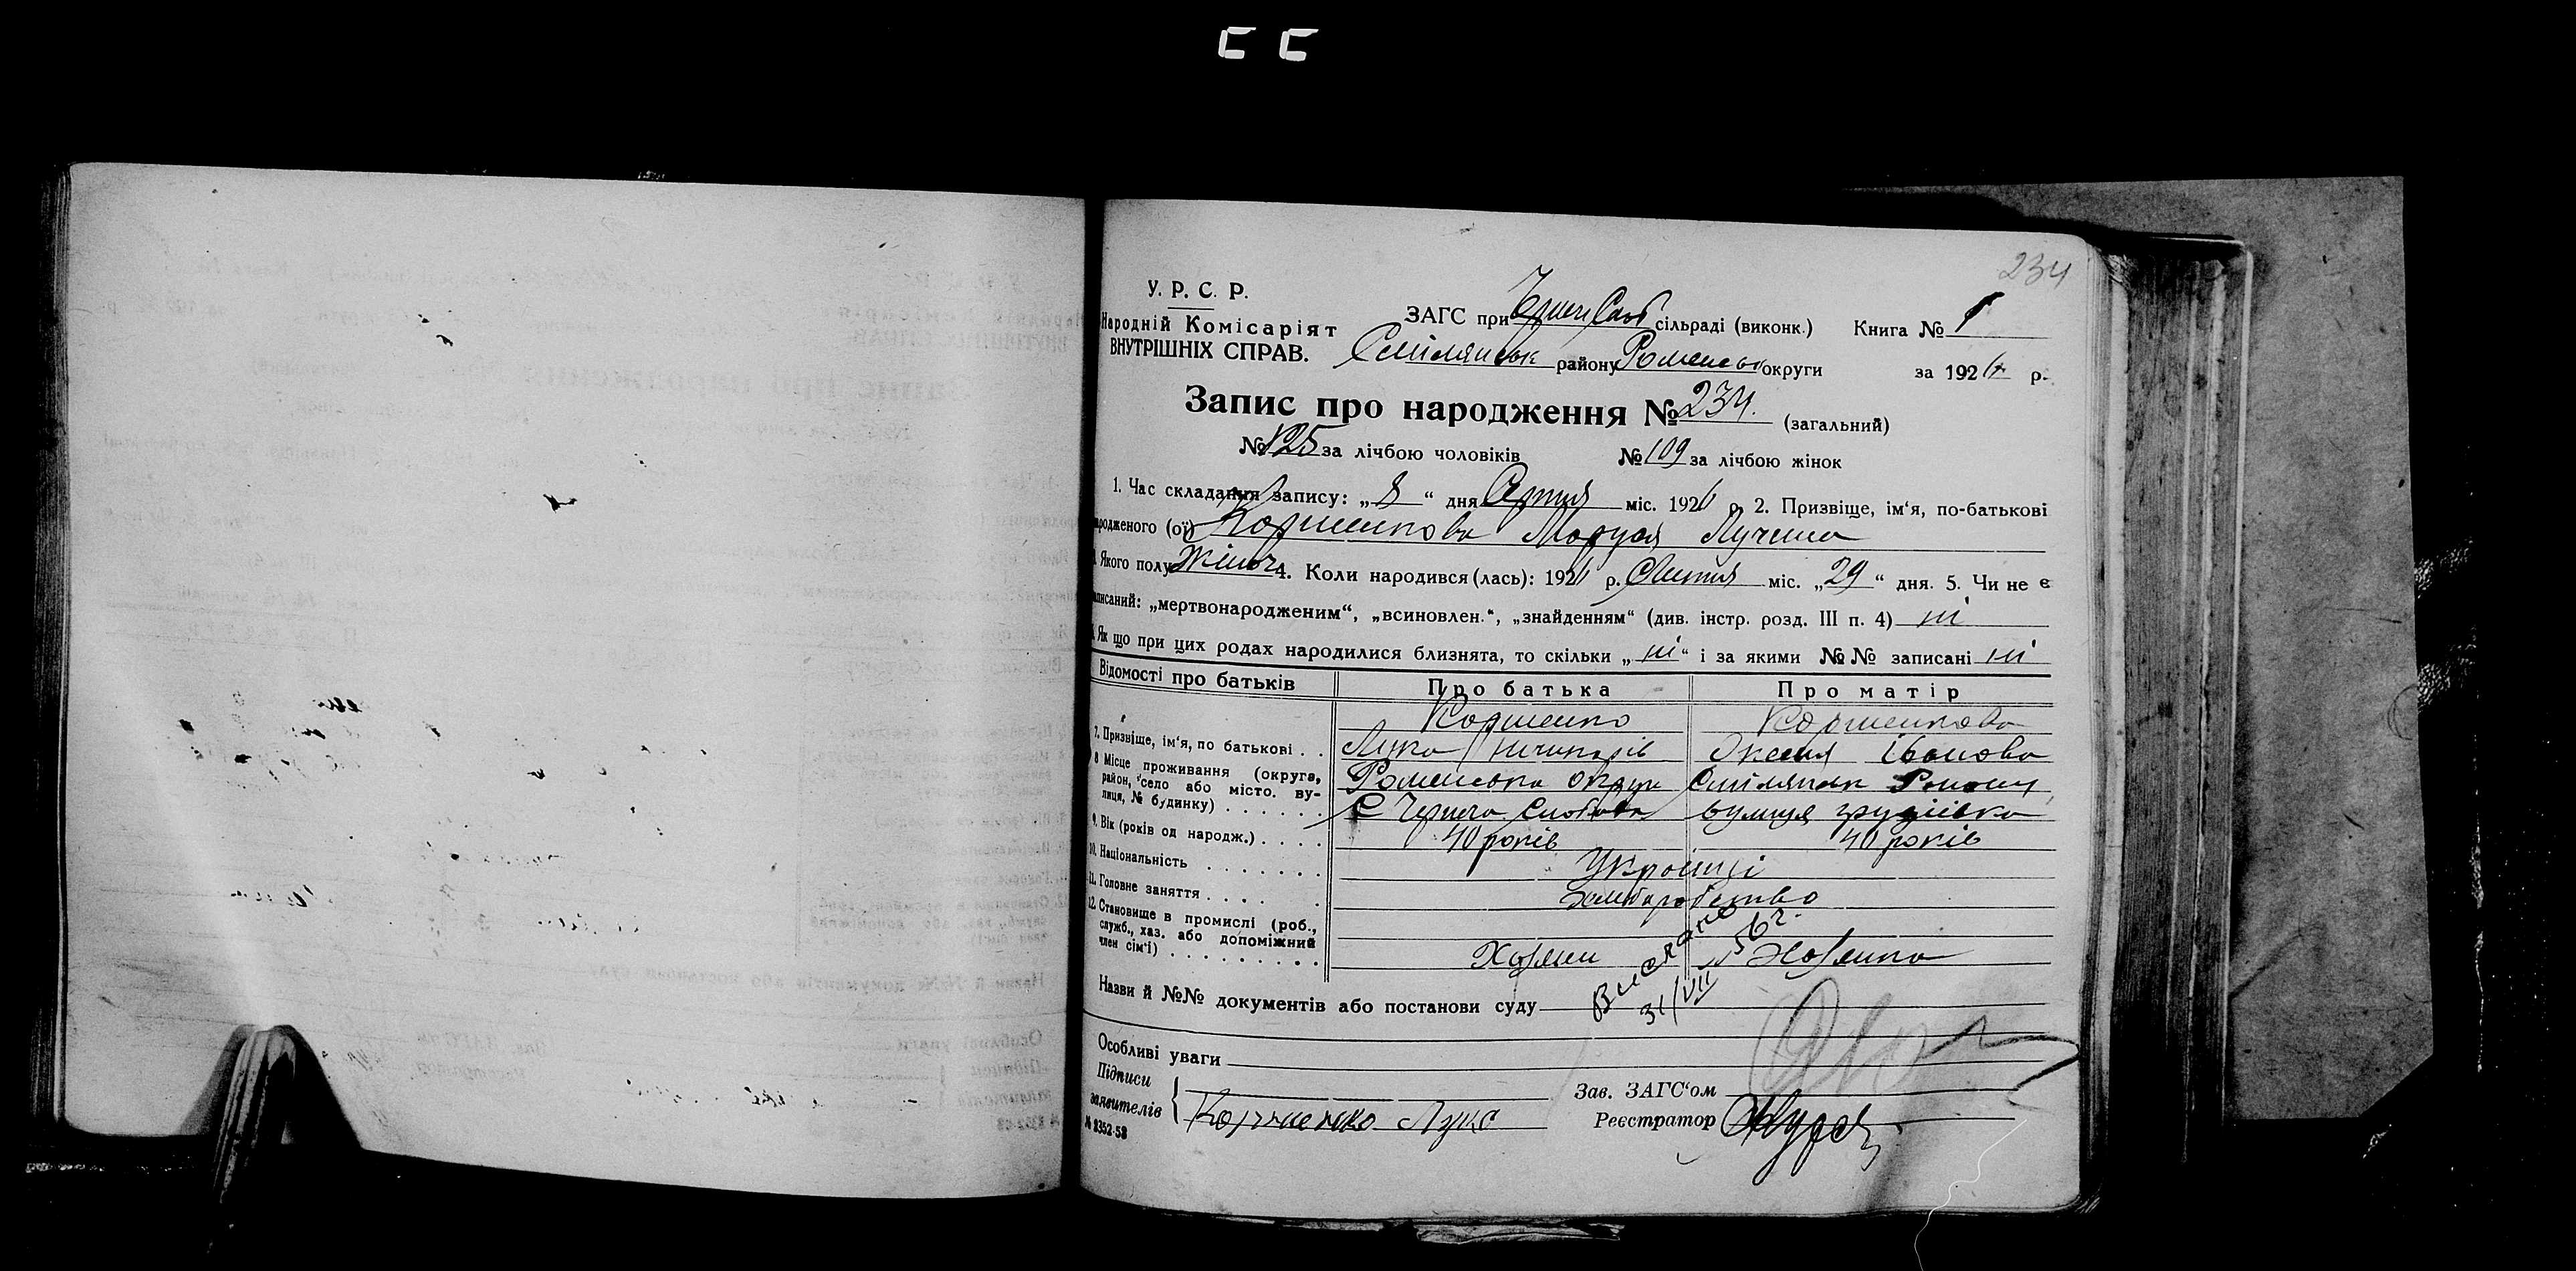 234
У. Р. С. Р.
Народній Комісаріят
ВНУТРІШНІХ СПРАВ.
ЗАГС при Черн Слоб сільраді (виконк.) Книга № 1
Смілянськ району Роменськ округи за 1926 р.
Запис про народження № 234. (загальний)
№ 125 за лічбою чоловіків № 109 за лічбою жінок
1. Час складання запису: „ 8 “ дня Серпня міс. 1926 р 2. Призвіще, ім‘я, по-батькові
народженого (ої) Маруся
Якого полу Жіноч 4. Коли народився (лась): 1926 р. міс. „ 29 “ дня. 5. Чи не є
записаний: „мертвонародженим“, „всиновлен.“, „знайденням“ (див. інстр. розд. III п. 4) ні
Як що при цих родах народилися близнята, то скільки „ ні “ і за якими №№ записані ні
Відомості про батьків Про батька Про матір
7. Призвіще, ім‘я, по батькові . . Лука Оксеня Іванова
8 Місце проживання (округа, район, село або місто. вулиця, № будинку) . . . . . . Роменська округа Смілянськ Району
С Черneча Слобода вулиця
9. Вік (років од народж.) . . . . 40 років 40 років
10. Національність . . . . . . . Українці
11. Головне заняття . . . . . Хліборобство
12. Становище в промислі (роб., служб., хаз. або допоміжний член сім‘ї) . . . . . . . . . Хазяин Хазяйка
Назви й №№ документів або постанови суду
Вислано
31/VII 56 г.
Особливі уваги
Підписи заявителів { Лука
Зав. ЗАГС‘ом
Реєстратор
№ 8352-58